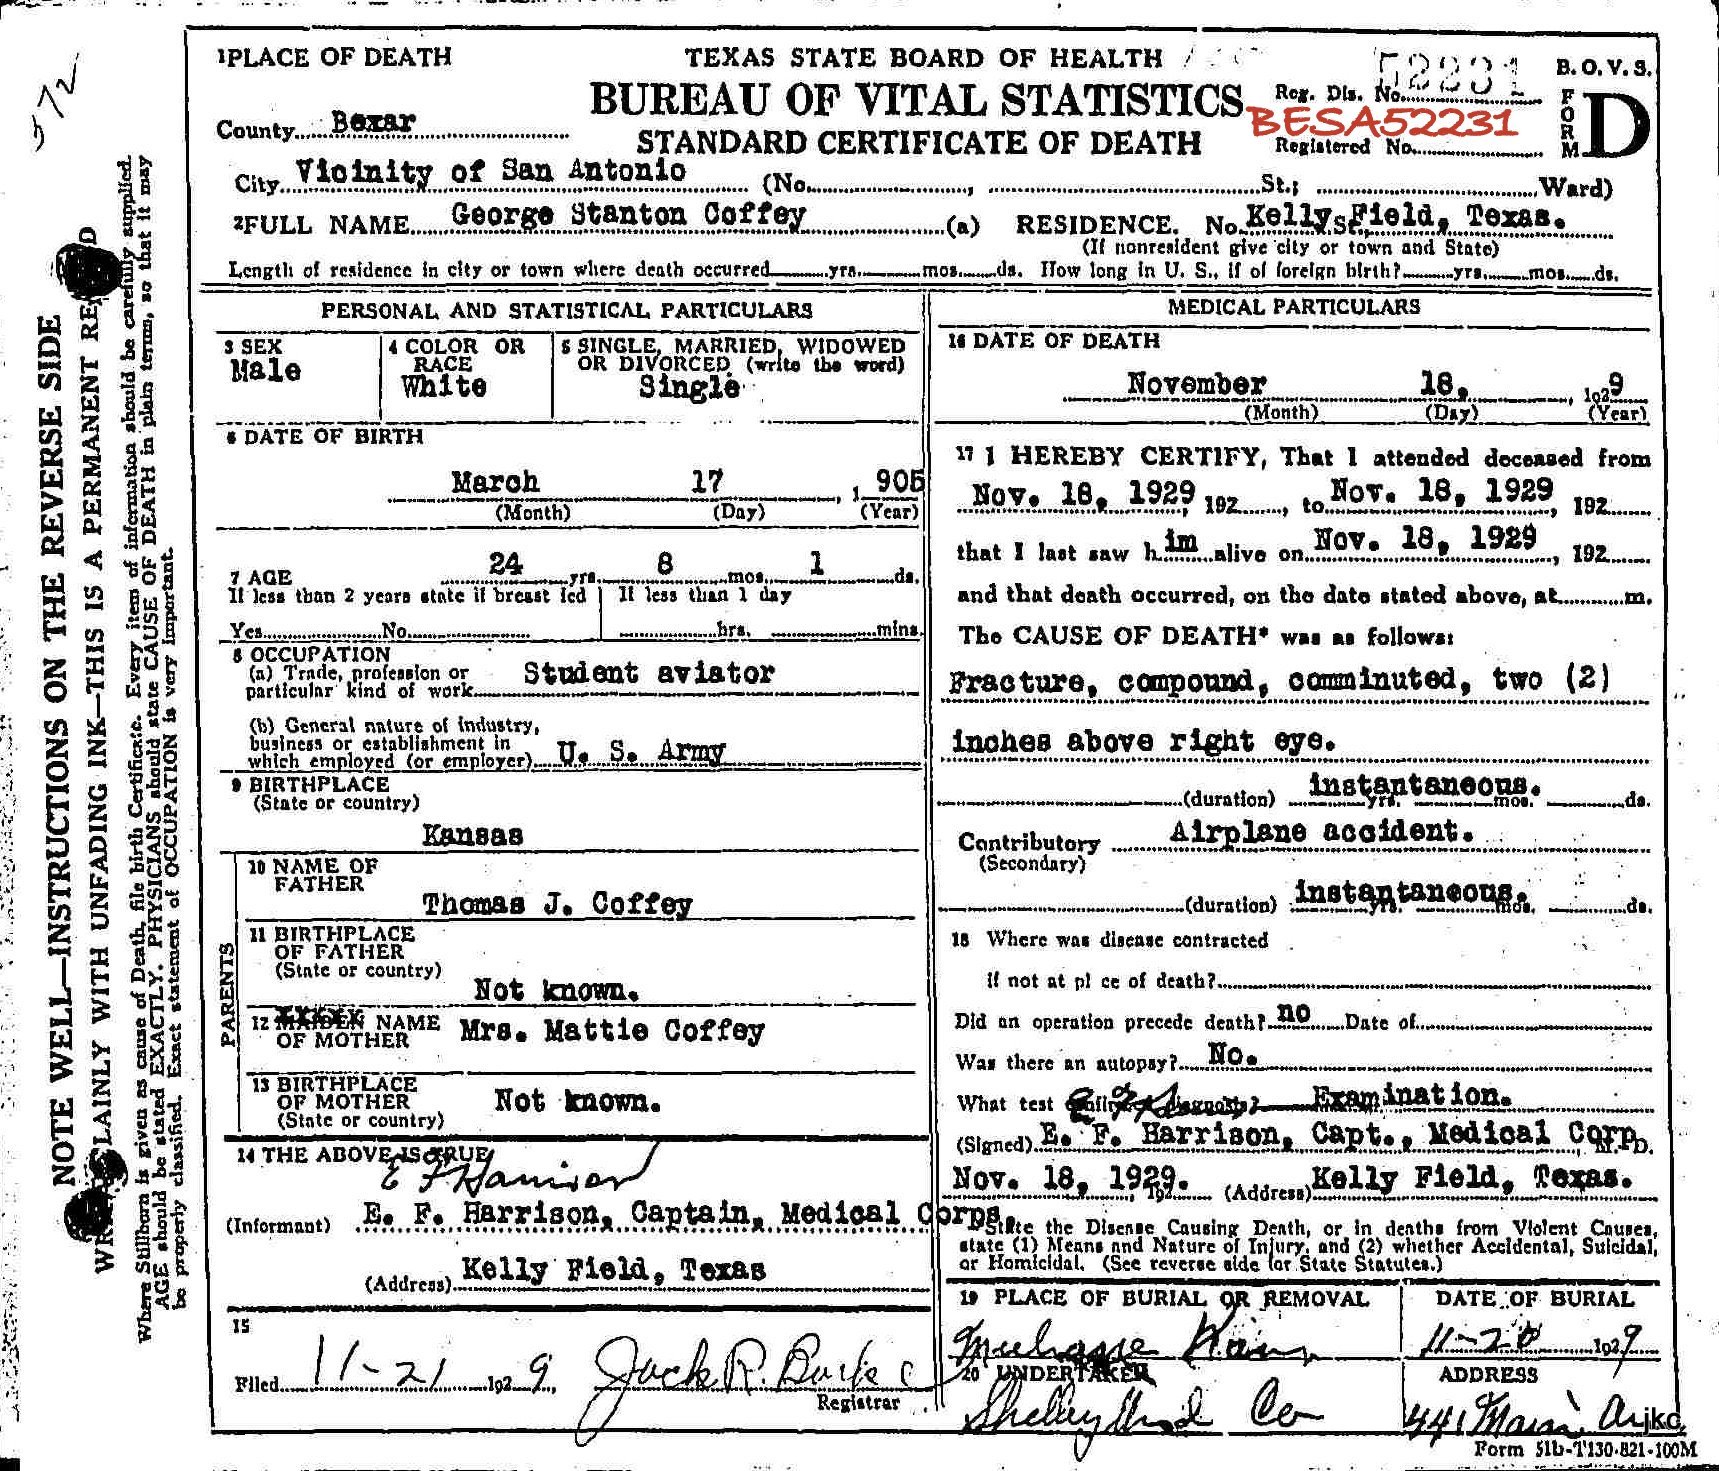 572
NOTE WELL—INSTRUCTIONS ON THE REVERSE SIDE
PLAINLY WITH UNFADING INK—THIS IS A PERMANENT RE D
Where Stillborn is given as cause of Death, file birth Certificate. Every item of information should be carefully supplied.
AGE should be stated EXACTLY. PHYSICIANS should state CAUSE OF DEATH in plain terms, so that it may
be properly classified. Exact statement of OCCUPATION is very important.
1 PLACE OF DEATH
TEXAS STATE BOARD OF HEALTH
BUREAU OF VITAL STATISTICS
STANDARD CERTIFICATE OF DEATH
Reg. Dis. No. 52231
BESA52231
Registered No.
B. O. V. S.
FORM D
County Bexar
City Vicinity of San Antonio (No. , St.; Ward)
2 FULL NAME George Stanton Coffey (a) RESIDENCE. No. Kelly Field, Texas. St.,
(If nonresident give city or town and State)
Length of residence in city or town where death occurred yrs. mos. ds. How long in U. S., if of foreign birth? yrs. mos. ds.
PERSONAL AND STATISTICAL PARTICULARS
3 SEX
Male
4 COLOR OR RACE
White
5 SINGLE, MARRIED, WIDOWED
OR DIVORCED (write the word)
Single
6 DATE OF BIRTH
March 17, 1905
(Month) (Day) (Year)
7 AGE 24 yrs. 8 mos. 1 ds.
If less than 2 years state if breast fed
Yes No
If less than 1 day
hrs. mins.
8 OCCUPATION
(a) Trade, profession or
particular kind of work Student aviator
(b) General nature of industry,
business or establishment in
which employed (or employer) U. S. Army
9 BIRTHPLACE
(State or country)
Kansas
PARENTS
10 NAME OF
FATHER
Thomas J. Coffey
11 BIRTHPLACE
OF FATHER
(State or country)
Not known.
12 MAIDEN NAME
OF MOTHER Mrs. Mattie Coffey
13 BIRTHPLACE
OF MOTHER
(State or country)
Not known.
14 THE ABOVE IS TRUE
E F Harrison
(Informant) E. F. Harrison, Captain, Medical Corps.
(Address) Kelly Field, Texas
15
Filed 11-21 1929, Jack R. Burke
Registrar
MEDICAL PARTICULARS
16 DATE OF DEATH
November 18, 1929
(Month) (Day) (Year)
17 I HEREBY CERTIFY, That I attended deceased from
Nov. 18, 1929, 192 , to Nov. 18, 1929, 192
that I last saw him alive on Nov. 18, 1929, 192
and that death occurred, on the date stated above, at m.
The CAUSE OF DEATH* was as follows:
Fracture, compound, comminuted, two (2)
inches above right eye.
(duration) instantaneous. yrs. mos. ds.
Contributory Airplane accident.
(Secondary)
(duration) instantaneous. yrs. mos. ds.
18 Where was disease contracted
if not at pl ce of death?
Did an operation precede death? no Date of
Was there an autopsy? No.
What test diagnosis? Examination.
(Signed) E. F. Harrison, Capt., Medical Corp M. D.
Nov. 18, 1929. 192 (Address) Kelly Field, Texas.
*State the Disease Causing Death, or in deaths from Violent Causes,
state (1) Means and Nature of Injury, and (2) whether Accidental, Suicidal,
or Homicidal. (See reverse side for State Statutes.)
19 PLACE OF BURIAL OR REMOVAL
Kans
DATE OF BURIAL
11-20 1929
20 UNDERTAKER
Co
ADDRESS
441 Main
jkc,
Form 51b-T130-821-100M